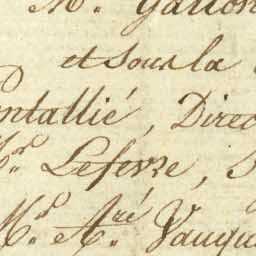 Mr. Gallon
et sous la
ntallié, Direc
Mrs Lefevre, S
Mrs Aré Vauqu